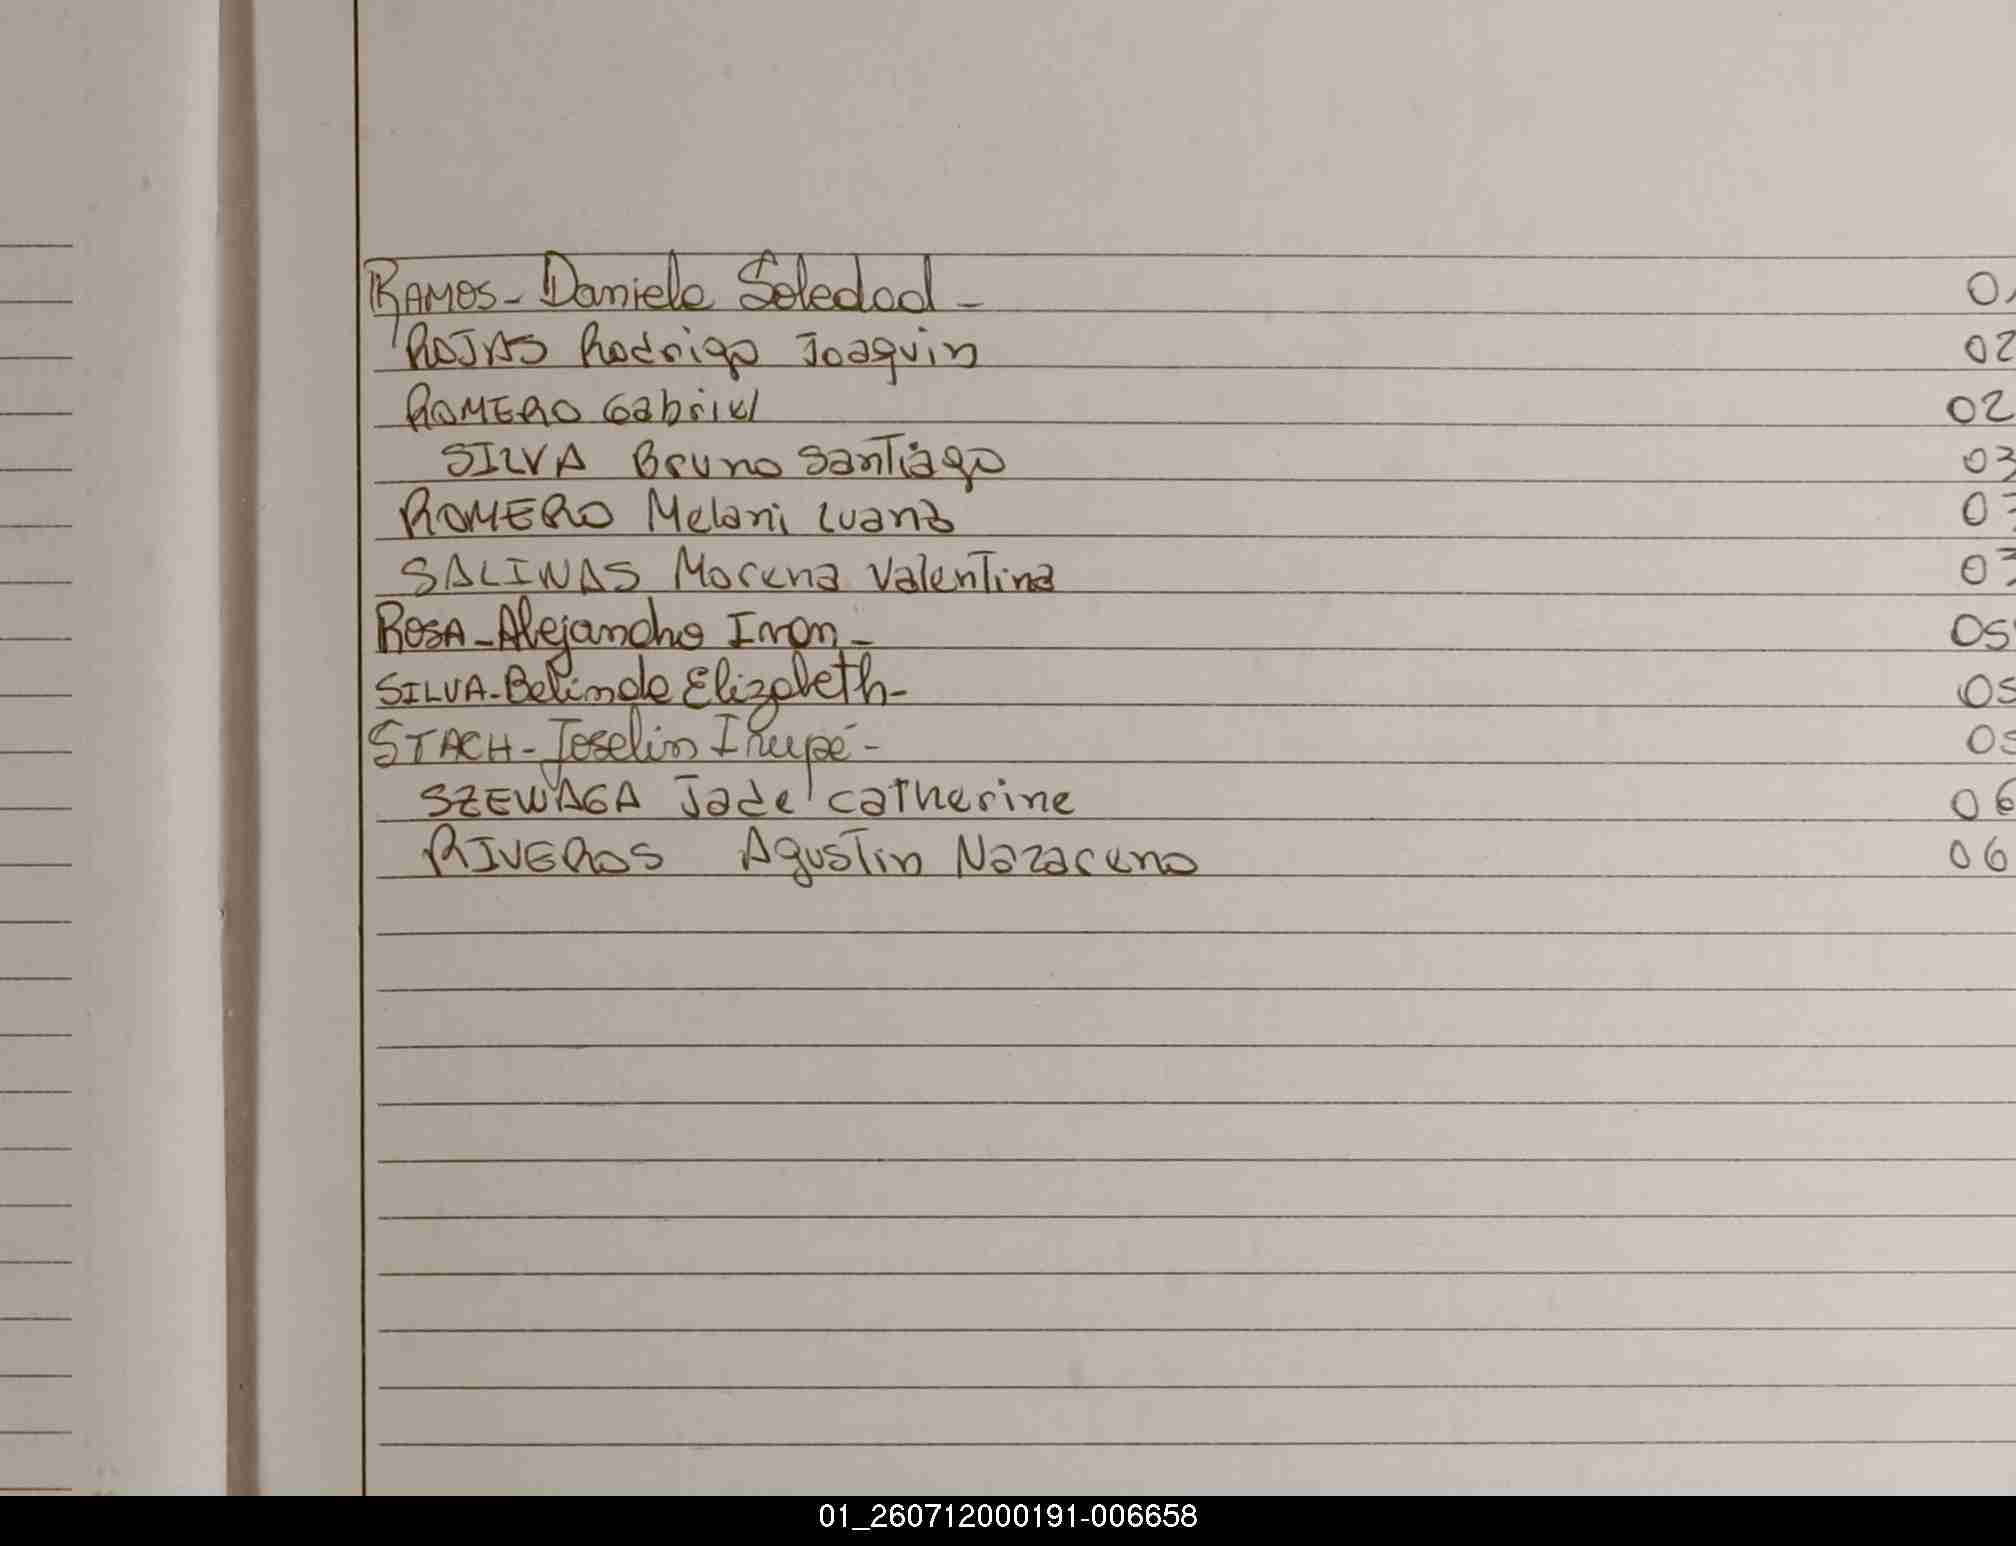 RAMOS - Daniela Soledad -
ROJAS Rodrigo Joaquin 02
ROMERO Gabriel 02
SILVA Bruno Santiago 03
ROMERO Melani Luana
SALINAS Morena Valentina 03
ROSA - Alejandro Ivan -
SILVA - Belinda Elizabeth -
STACH - Joselin
SZEWAGA Jade Catherine 06
RIVEROS Agustin Nazareno 06
01_260712000191-006658